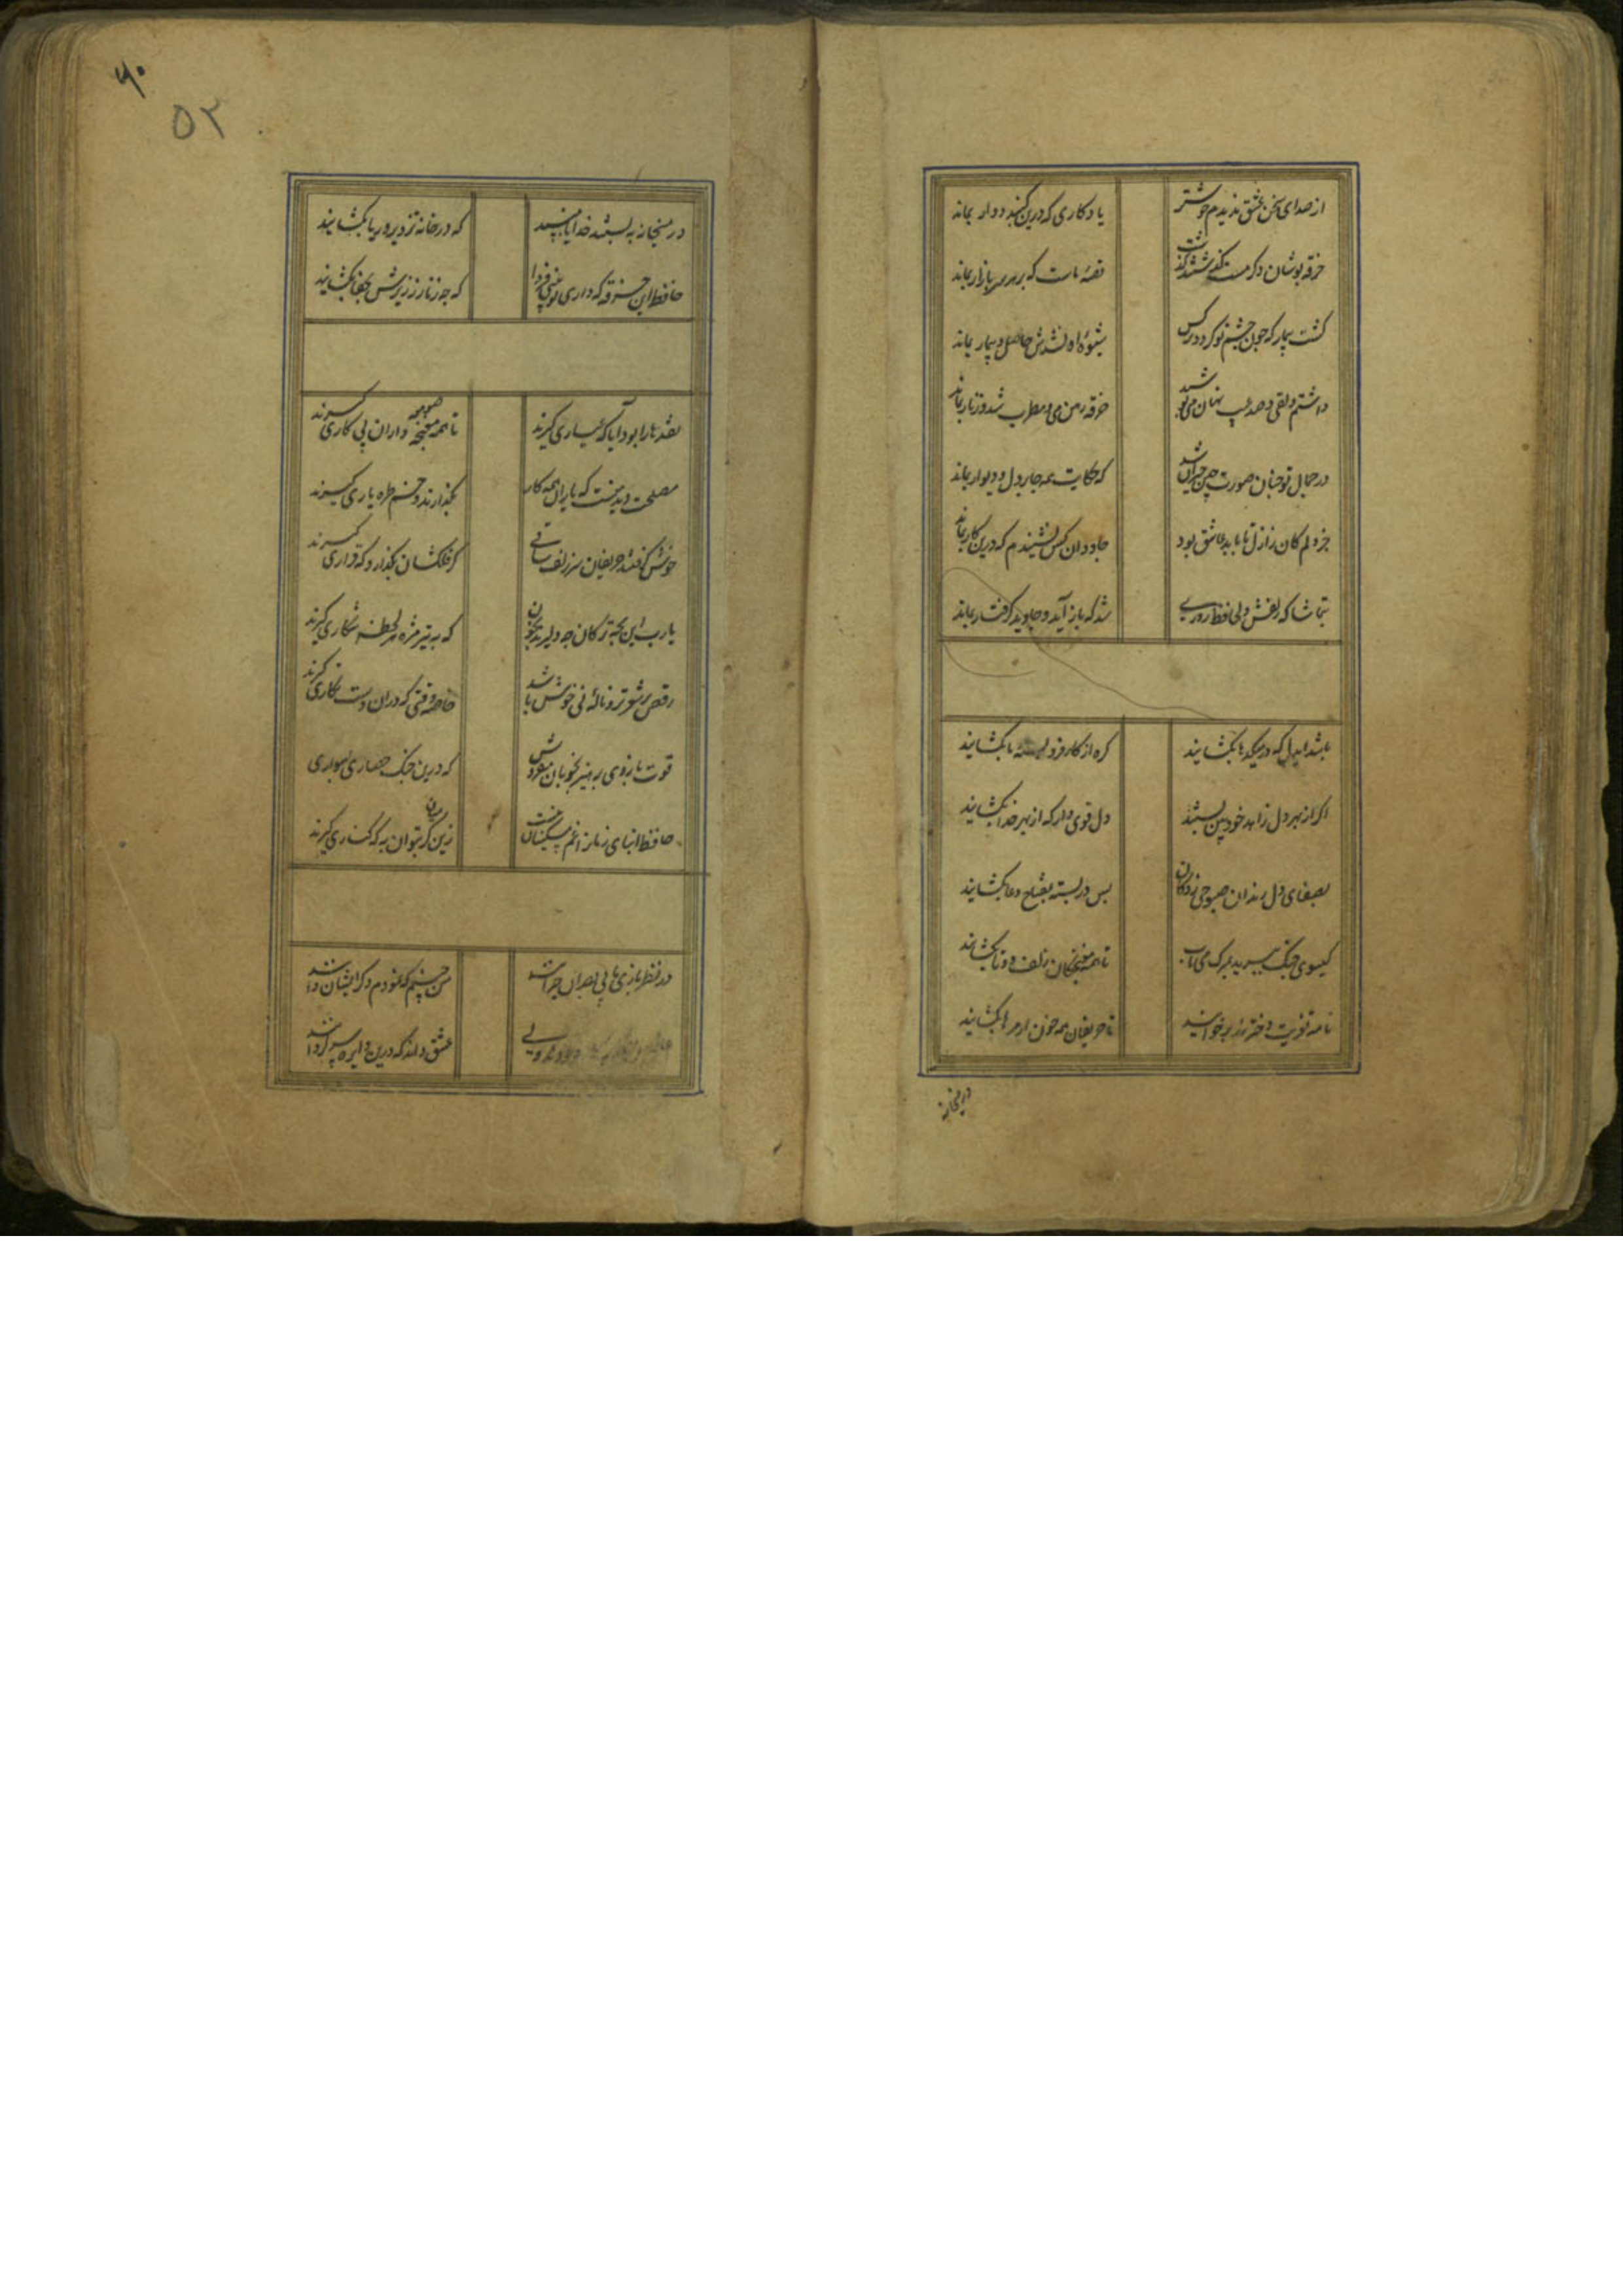 از صدای سخن عشق ندیدم خوشتر یادکاری که درین کنبد دوار بماند
خرقه پوشان دکر مست کذشتند کذشت قصهٔ ماست که بر هر سر بازار بماند
کشت بیمار که چون چشم تو کردد نرکس شیوهٔ او نشدش حاصل و بیمار بماند
داشتم دلقی و صد عیب نهان می پوشید خرقه رهن می و مطرب شد و زنار بماند
در جمال تو چنان صورت چین حیران شد که حکایت همه جا بر در و دیوار بماند
جز دلم کان ز ازل تا بابد عاشق بود جاودان کس نشنیدم که درین کار بماند
بتماشا که زلفش دل حافظ روزی شد که باز آید و جاوید کرفتار بماند
باشد ای دل که در میکدها بکشایند کره از کار فرو بسته ما بکشایند
اکر از بهر دل زاهد خودبین بستند دل قوی دار که از بهر خدا بکشایند
بصفای دل رندان صبوحی زدکان بس در بسته بمفتاح دعا بکشایند
کیسوی چنک ببرید بمرک می ناب تا همه مغبچکان زلف دوتا بکشایند
نامه تعزیت دختر رز برخوانید تا حریفان همه خون از مژها بکشایند
در میخانه
۶۰
۵۲
در میخانه ببستند خدایا مپسند که در خانه تزویر و ریا بکشایند
حافظ این خرقه که داری تو ببینی فردا که چه زنار ز زیرش بجفا بکشایند
نقدها را بود آیا که عیاری کیرند تا همه صومعه داران پی کاری کیرند
مصلحت دید منست که یاران همه کار بکذارند و خم طره یاری کیرند
خوش کرفتند حریفان سر زلف ساقی کر فلکشان بکذارد که قراری کیرند
یارب این بچه ترکان چه دلیرند بخون که به تیر مژه هر لحظه شکاری کیرند
رقص بر شعر تر و نالهٔ نی خوش باشد خاصه وقتی که دران دست نکاری کیرند
قوت بازوی پرهیز بخوبان مفروش که درین خیل حصاری بسواری
حافظ ابنای زمان را غم مسکینان نیست زین میان کر بتوان به که کناری کیرند
در نظربازی ما بی بصران حیرانند من چنینم که نمودم دکر ایشان دانند
عشق داند که درین دایره سرکردانند